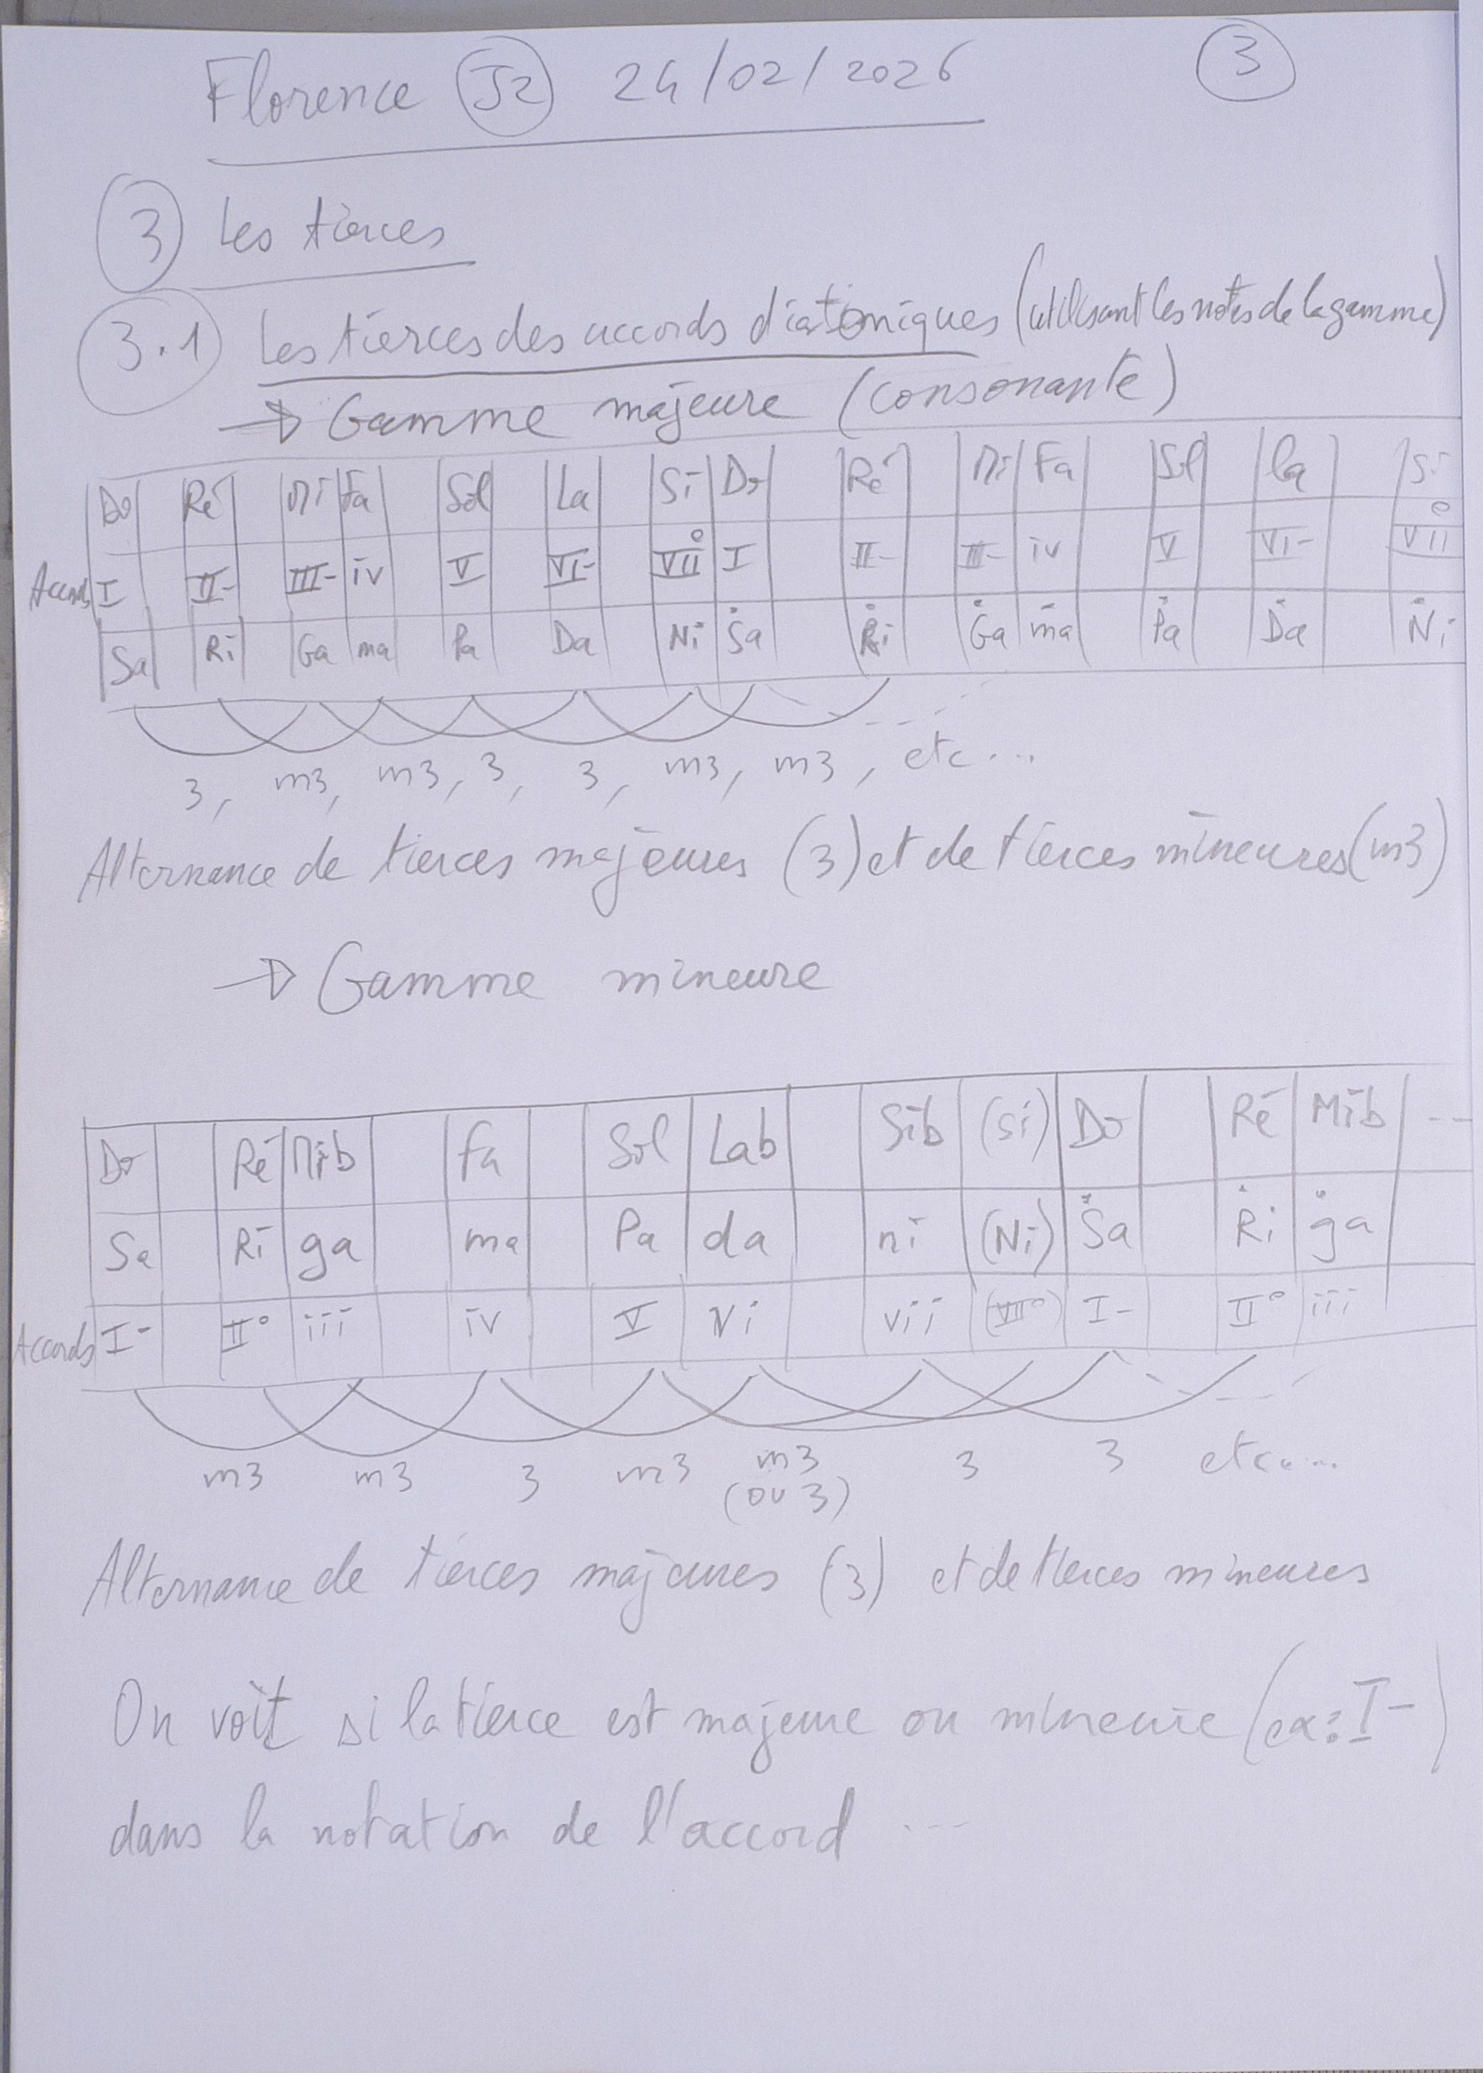 Florence J2 24/02/2026 3
3 Les tierces
3.1 Les tierces des accords diatoniques (utilisant les notes de la gamme)
→ Gamme majeure (consonante)
Do Ré Mi Fa Sol La Si Do Ré Mi Fa Sol La Si
Accords I II- III- iv V VI- VII° I II- III- iv V VI- VII°
Sa Ri Ga ma Pa Da Ni Ṡa Ṙi Ġa ṁa Ṗa Ḋa Ṅi
3, m3, m3, 3, 3, m3, m3, etc...
Alternance de tierces majeures (3) et de tierces mineures (m3)
→ Gamme mineure
Do Ré Mib Fa Sol Lab Sib (Si) Do Ré Mib --
Sa Ri ga ma Pa da ni (Ni) Ṡa Ṙi ġa
Accords I- II° iii iv V Vi vii (VII°) I- II° iii
m3 m3 3 m3 m3 3 3 etc....
(ou 3)
Alternance de tierces majeures (3) et de tierces mineures
On voit si la tierce est majeure ou mineure (ex: I-)
dans la notation de l'accord ...